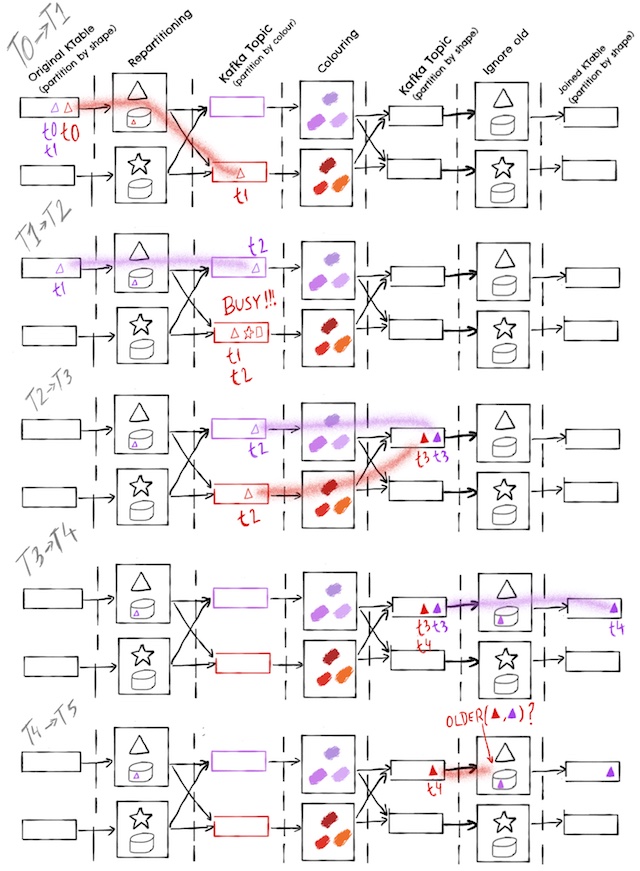 T0→T1
Original KTable
(partition by shape)
Repartitioning
Kafka Topic
(partition by colour)
Colouring
Kafka Topic
(partition by shape)
Ignore old
Joined KTable
(partition by shape)
t0 t0
t1
t1
T1→T2
t2
t1
BUSY!!!
t1
t2
T2→T3
t2
t3 t3
t2
T3→T4
t3 t3
t4
t4
T4→T5
OLDER(▲,▲)?
t4